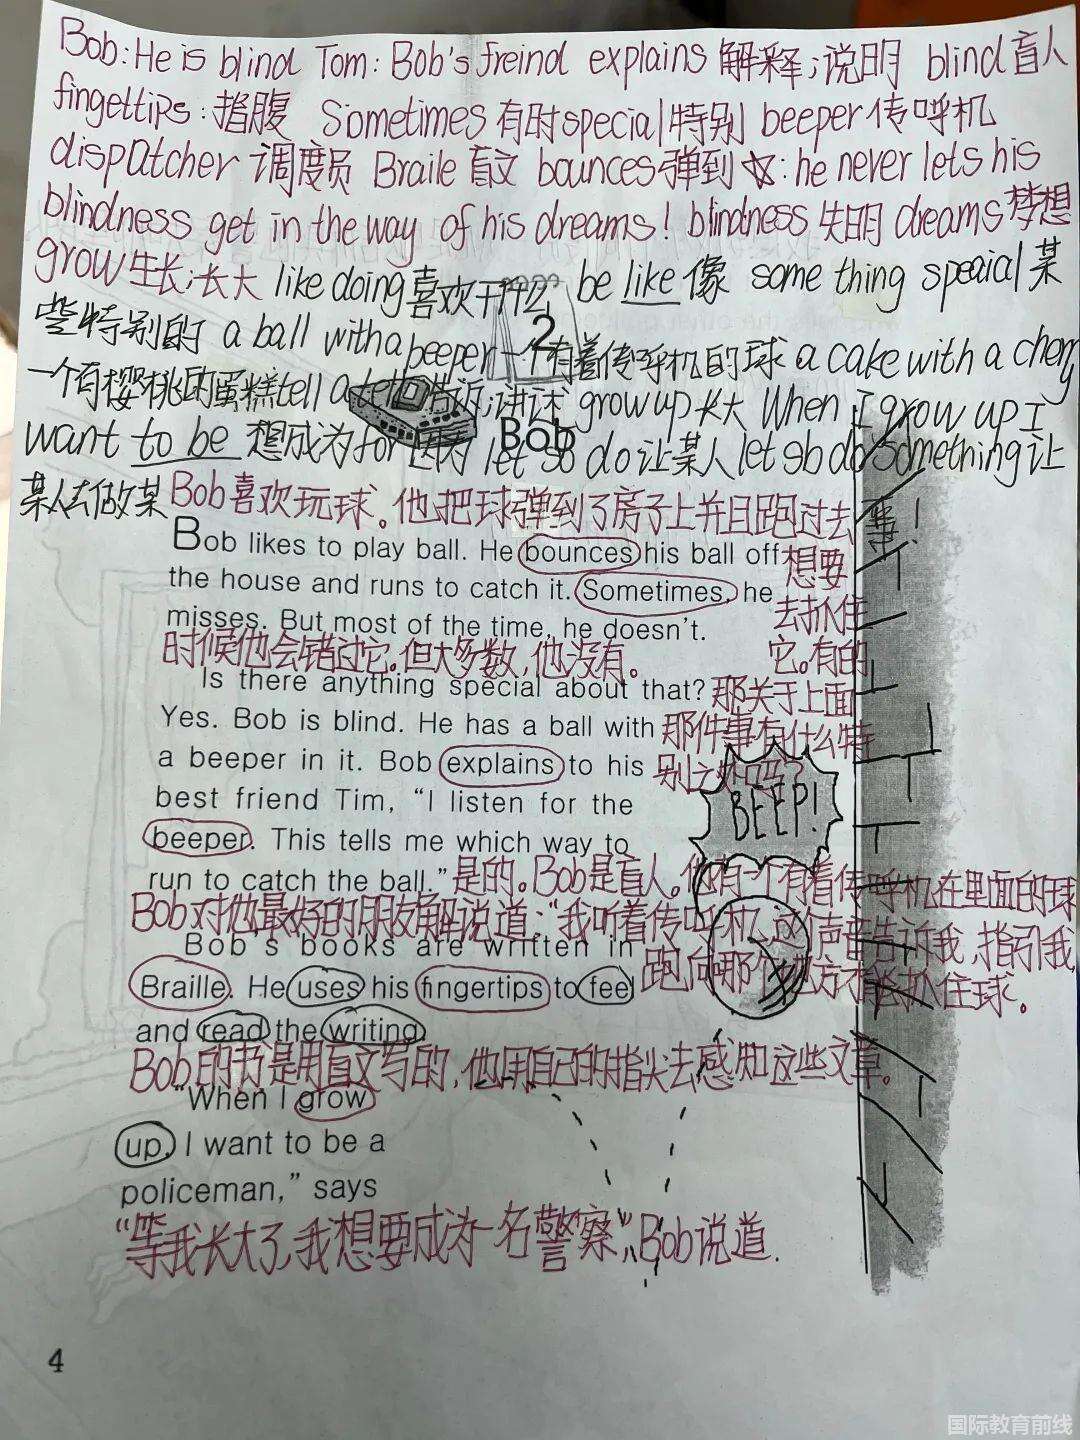 Bob: He is blind Tom: Bob's freind explains 解释;说明 blind 盲人
fingettips: 指腹 Sometimes 有时 special 特别 beeper 传呼机
dispatcher 调度员 Braile 盲文 bounces 弹到 ☆: he never lets his
blindness get in the way of his dreams! blindness 失明 dreams 梦想
grow 生长;长大 like doing 喜欢干什么 be like 像 some thing speaical 某
些特别的 a ball with a beeper 一个有着传呼机的球 a cake with a cherry
2
一个有樱桃的蛋糕 tell 告诉;讲述 grow up 长大 When I grow up I
Bob
want to be 想成为 for 因为 let sb do 让某人 let sb do something 让
某人去做某事!
Bob喜欢玩球。他把球弹到了房子上并且跑过去
Bob likes to play ball. He bounces his ball off 想要
the house and runs to catch it. Sometimes, he 去抓住
misses. But most of the time, he doesn't. 它。有的
时候他会错过它。但大多数,他没有。
Is there anything special about that? 那关于上面
Yes. Bob is blind. He has a ball with 那件事有什么特
a beeper in it. Bob explains to his 别之处吗?
best friend Tim, “I listen for the
BEEP!
beeper. This tells me which way to
run to catch the ball.” 是的。Bob是盲人。他有一个有着传呼机在里面的球
Bob对他最好的朋友解说道:“我听着传呼机,这个声音告诉我,指引我
Bob's books are written in
跑向那个地方才能抓住球。
Braille. He uses his fingertips to feel
and read the writing.
Bob的书是用盲文写的,他用自己的指尖去感知这些文章。
“When I grow
up, I want to be a
policeman,” says
“等我长大了,我想要成为一名警察”,Bob说道.
4
国际教育前线